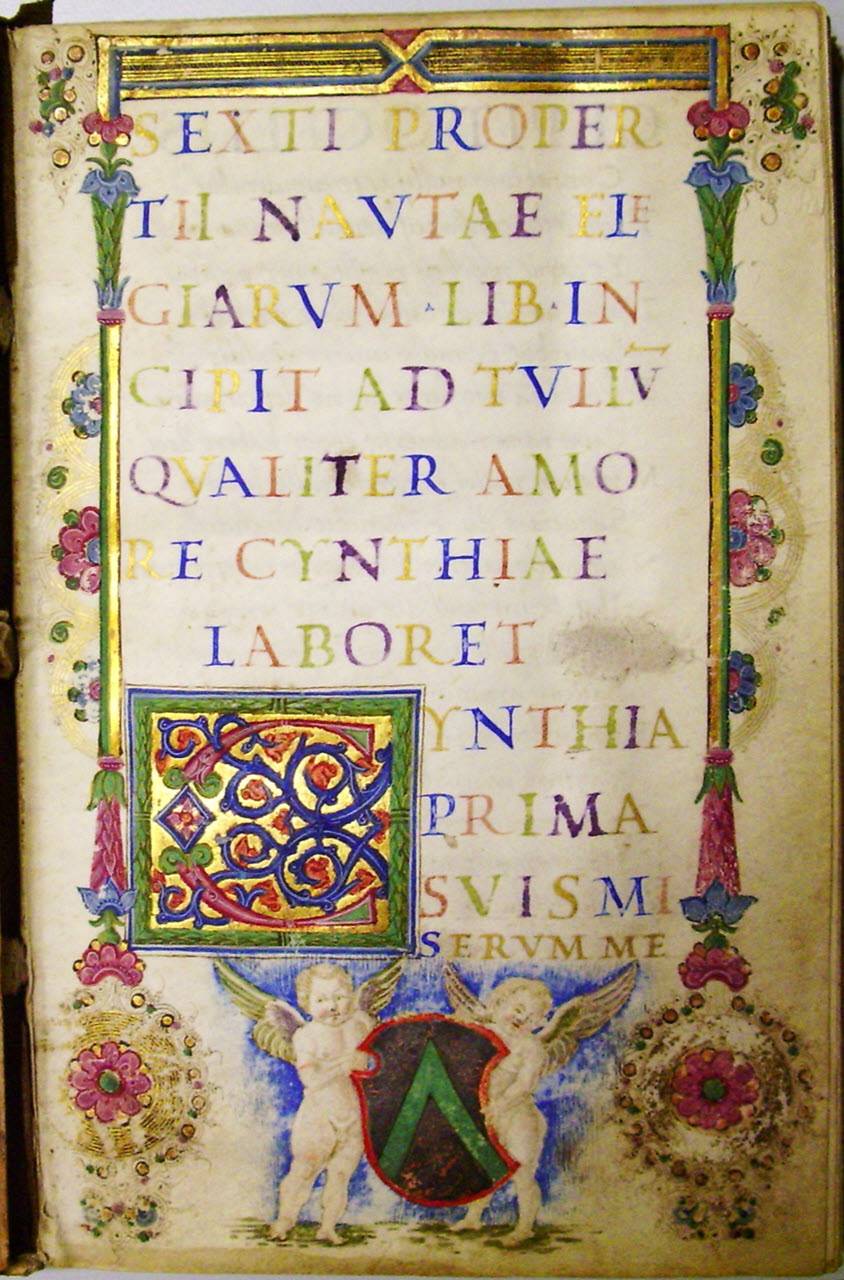 SEXTI PROPER
TII NAVTAE ELE
GIARVM · LIB · IN
CIPIT AD TVLLV̄
QVALITER AMO
RE CYNTHIAE
LABORET
CYNTHIA
PRIMA
SVIS MI
SERVM ME